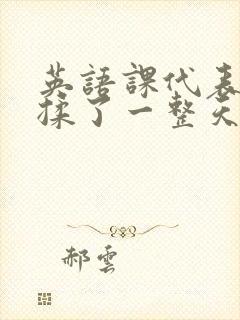 英語課代表
揉了一整天
郝雲